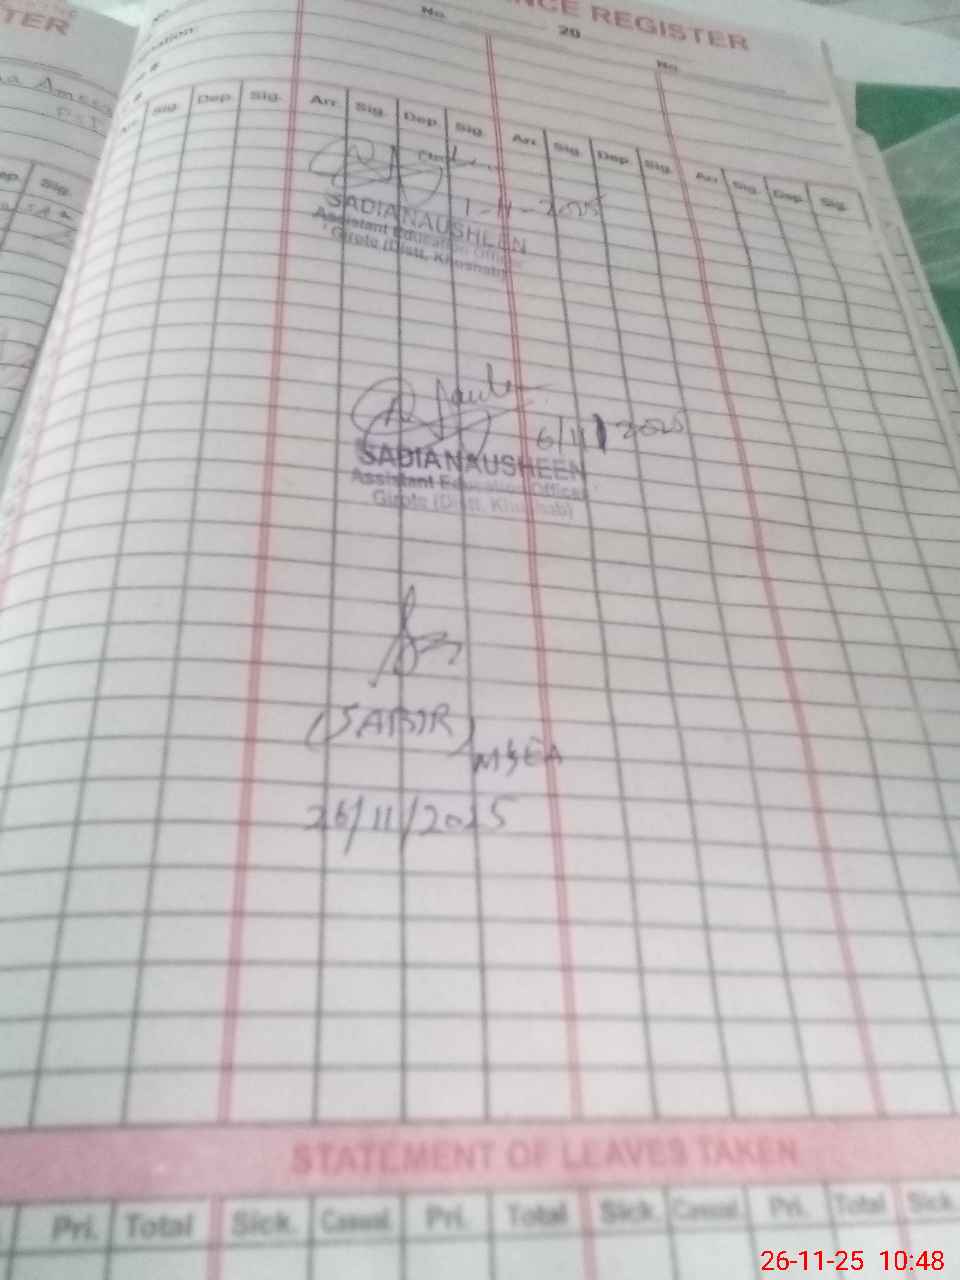 NCE REGISTER
TER
No. 20 No.
Sig. Dep. Sig. Arr. Sig. Dep. Sig. Arr. Sig. Dep. Sig. Arr. Sig. Dep. Sig.
Sig.
1-11-2025
SADIA NAUSHEEN
Assistant Education Officer
Girote (Distt. Khushab)
6/11/2025
SADIA NAUSHEEN
Assistant Education Officer
Girote (Distt. Khushab)
(SABIR)
MSEA
26/11/2025
STATEMENT OF LEAVES TAKEN
Pri. Total Sick. Casual. Pri. Total Sick. Casual. Pri. Total Sick.
26-11-25 10:48